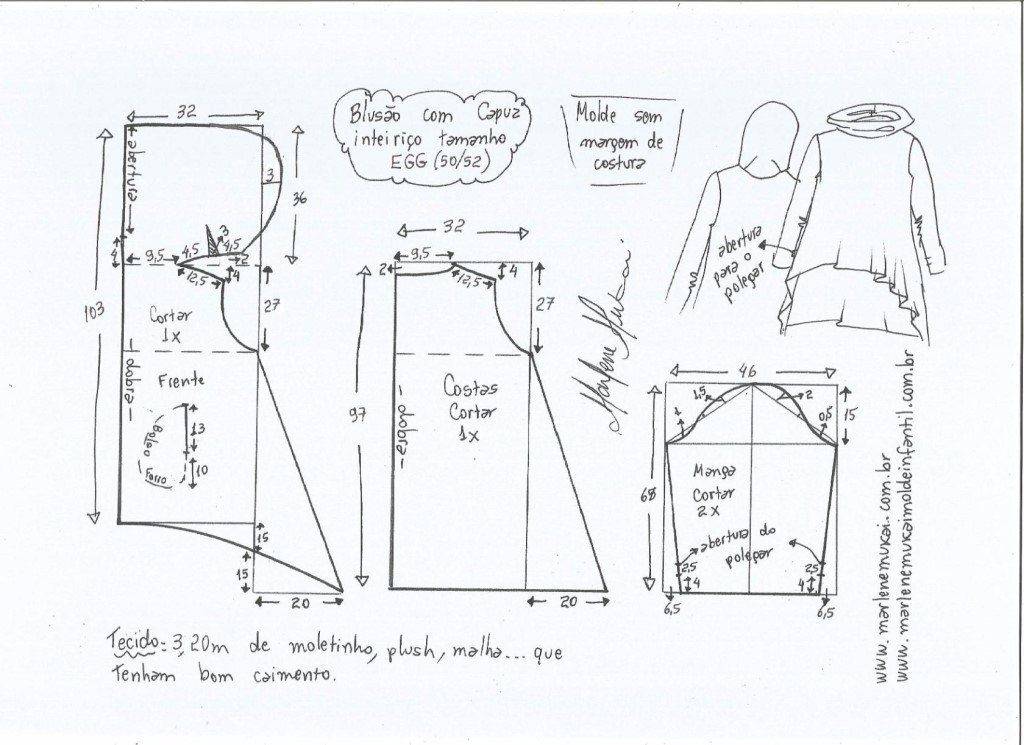 Blusão com Capuz
inteiriço tamanho
EGG (50/52)
Molde sem
margem de
costura
32
103
abertura
3
36
3
4,5
4,5
9,5
2
4
4
12,5
27
Cortar
1x
dobra
Frente
Bolso
Forro
13
10
15
15
20
32
9,5
2
4
12,5
27
97
dobra
Costas
Cortar
1x
20
Marlene Mukai
abertura
para o
polegar
46
1,5
2
1
0,5
15
68
Manga
Cortar
2x
abertura do
polegar
2,5
2,5
4
4
6,5
6,5
www.marlenemukai.com.br
www.marlenemukaimoldeinfantil.com.br
Tecido: 3,20m de moletinho, plush, malha... que
tenham bom caimento.